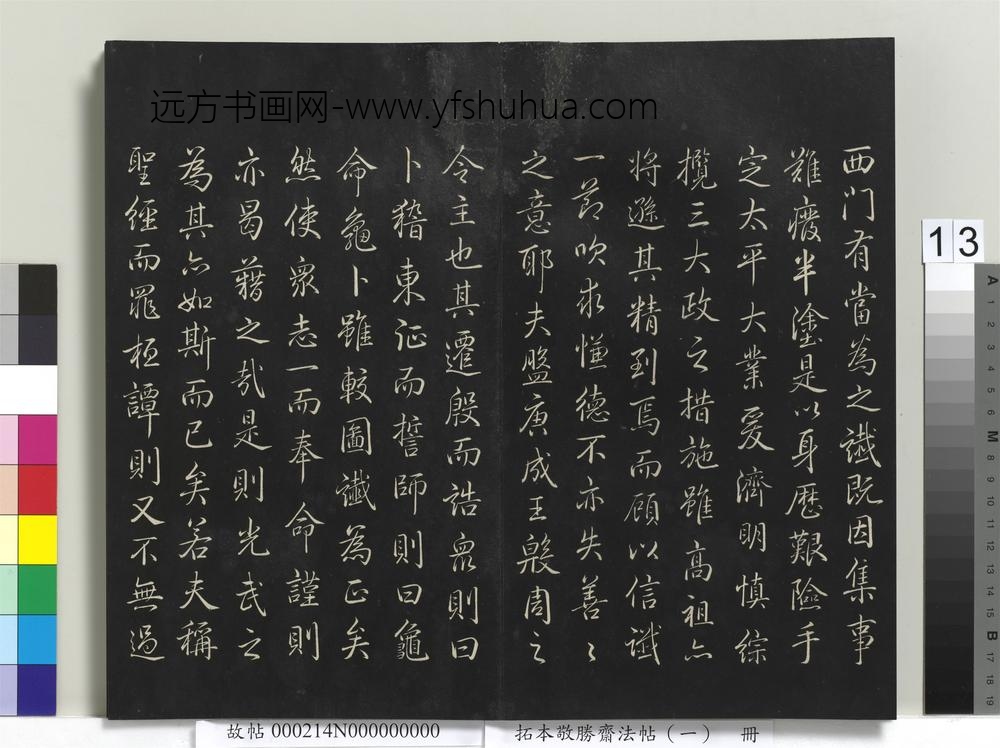 远方书画网-www.yfshuhua.com
西门有當為之讖既因集事
難廢半塗是以身歷艱險手
定太平大業爰濟明慎綜
攬三大政之措施雖高祖亦
將遜其精到焉而顧以信讖
一節吹求慊德不亦失善善
之意耶夫盤庚成王殷周之
令主也其遷殷而誥衆則曰
卜稽東征而誓師則曰龜
命龜卜雖較圖讖為正矣
然使衆志一而奉命謹則
亦曷藉之哉是則光武之
為其亦如斯而已矣若夫稱
聖經而罪桓譚則又不無過
13
A 1 2 3 4 5 6 M 8 9 10 11 12 13 14 15 B 17 18 19
故帖 000214N000000000
拓本敬勝齋法帖（一） 冊